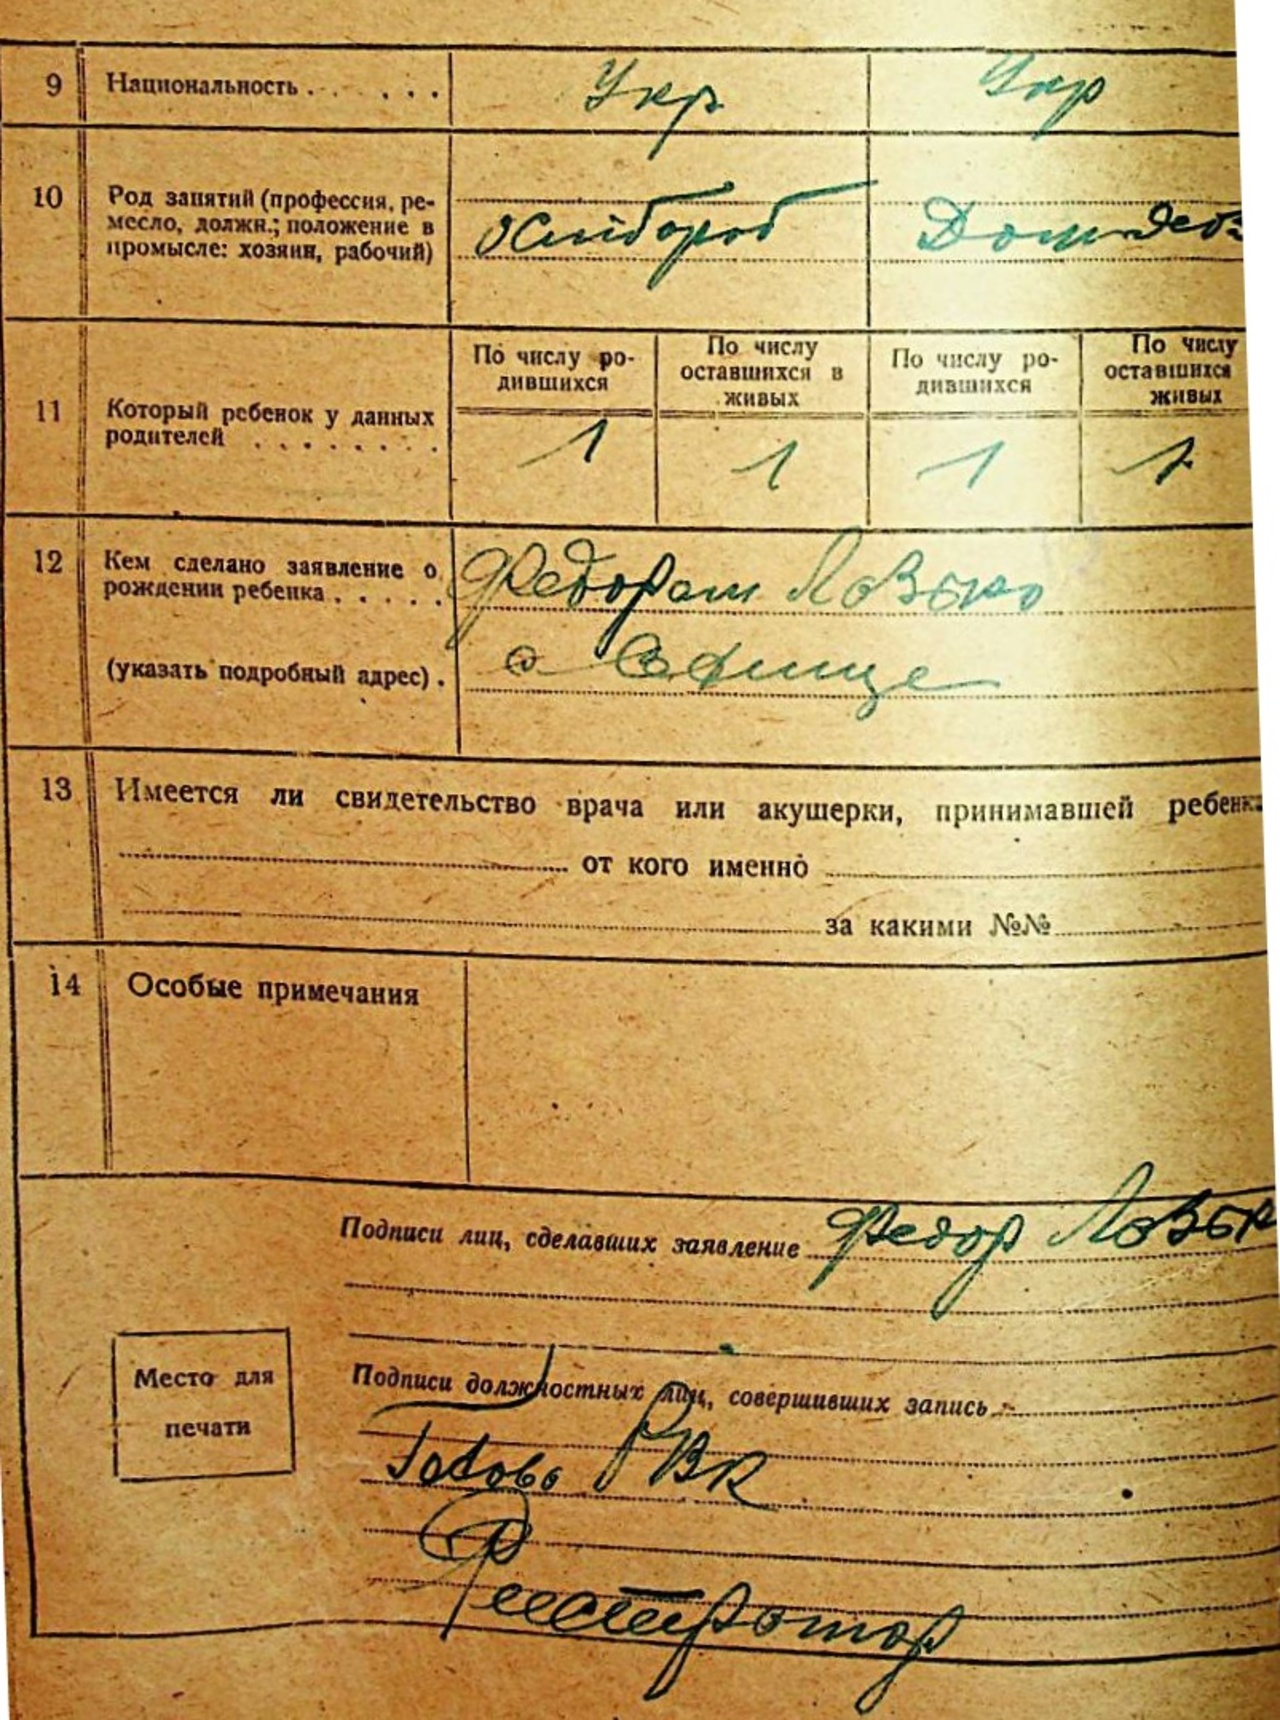 9 Национальность . . . . . . Укр Укр
10 Род занятий (профессия, ре-
месло, должн.; положение в
промысле: хозяин, рабочий)
11 Который ребенок у данных
родителей . . . . . . . .
По числу ро-
дившихся
По числу
оставшихся в
живых
По числу ро-
дившихся
По числу
оставшихся
живых
1 1 1 1
12 Кем сделано заявление о
рождении ребенка . . . . .
Федорам
(указать подробный адрес) .
13 Имеется ли свидетельство врача или акушерки, принимавшей ребенка
от кого именно
за какими №№
14 Особые примечания
Подписи лиц, сделавших заявление Федор
Место для
печати
Подписи должностных лиц, совершивших запись
Голова РВК